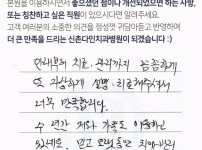 본원을 이용하시면서 좋으셨던 점이나 개선되었으면 하는 사항,
또는 칭찬하고 싶은 직원이 있으시다면 알려주세요.
고객 여러분의 소중한 의견을 정성껏 귀담아듣고 반영하여
더 큰 만족을 드리는 신촌다인치과병원이 되겠습니다 :)
안내부터 치료, 관리까지 꼼꼼하게
또 자상하게 설명, 치료해주셔서
너무 만족합니다.
수 년간 저와 가족도 이용하고
있네요. 믿고 오랫동안